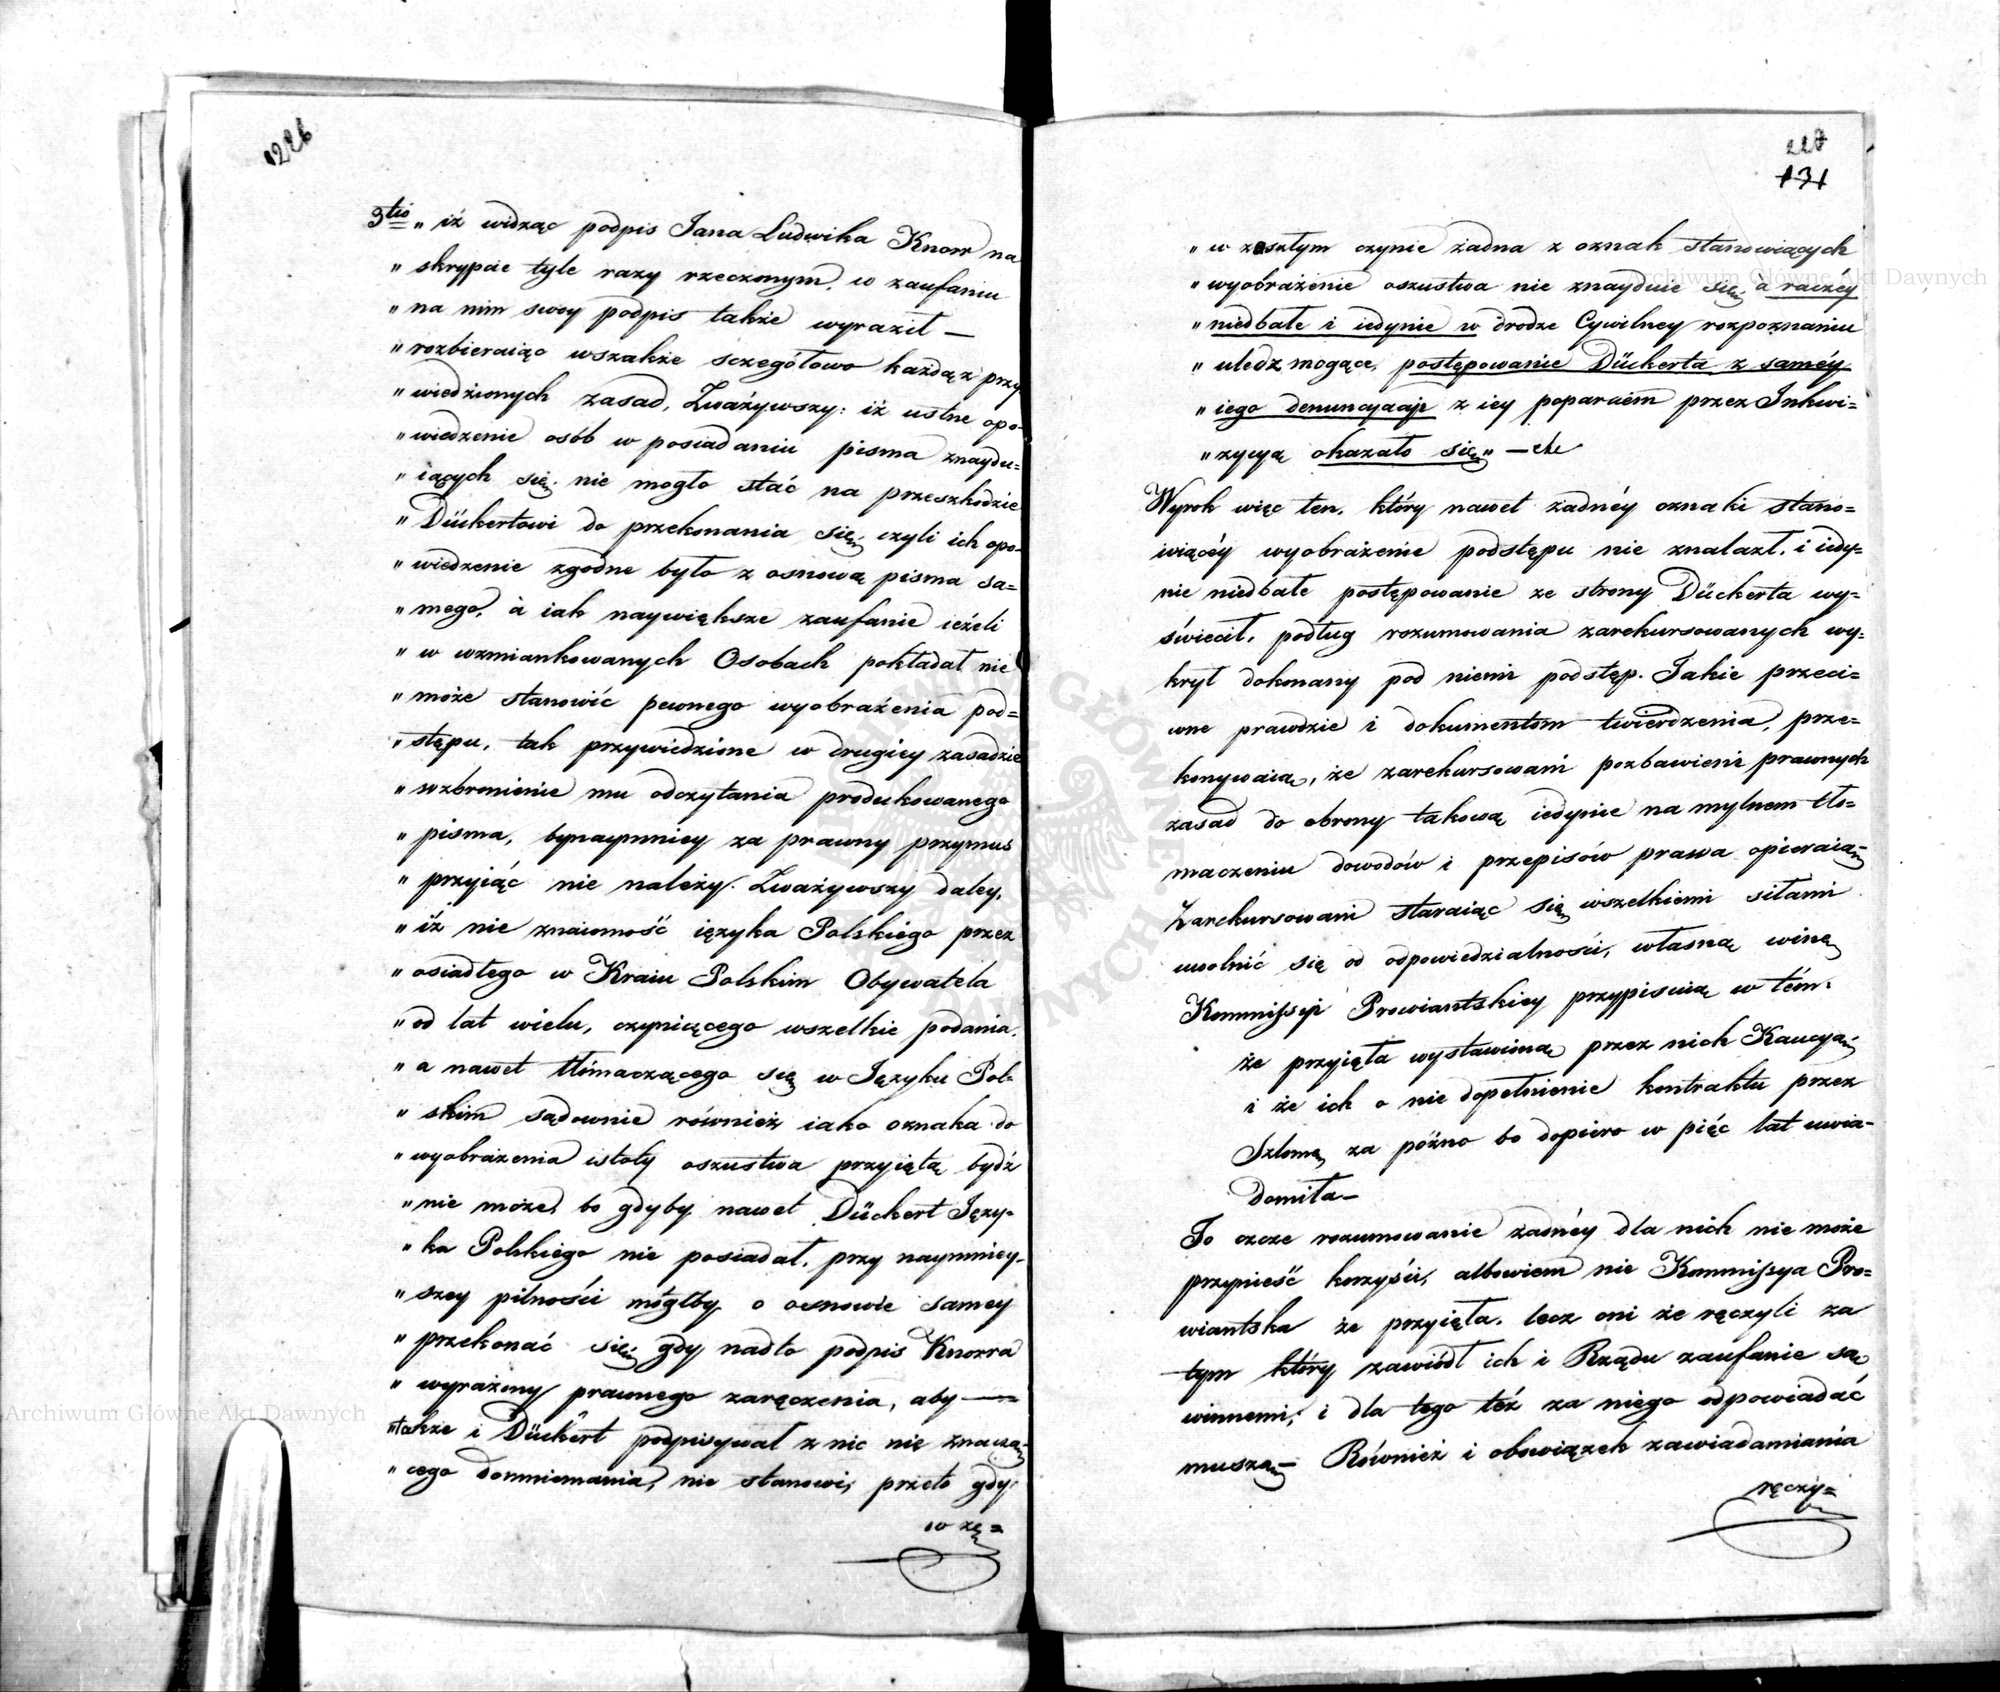 226
3tio „ iż widząc podpis Jana Ludwika Knorr na
„ skrypcie tyle razy rzeczonym, w zaufaniu
„ na nim swoy podpis także wyraził —
„ rozbieraiąc wszakże sczegółowo każdą z przy
„ wiedzionych zasad, Zważywszy: iż ustne opo-
„ wiedzenie osób w posiadaniu pisma znaydu=
„ iących się, nie mogło stać na przeszkodzie
„ Dückertowi do przekonania się, czyli ich opo-
„ wiedzenie zgodne było z osnową pisma sa=
„ mego, à iak naywiększe zaufanie ieżeli
„ w wzmiankowanych Osobach pokładał nie
„ może stanowić pewnego wyobrażenia pod=
„ stępu, tak przywiedzione w drugiey zasadzie
„ wzbronienie mu odczytania produkowanego
„ pisma, bynaymniey za prawny przymus
„ przyiąć nie należy. Zważywszy daley,
„ iż nie znaiomość ięzyka Polskiego przez
„ osiadłego w Kraiu Polskim Obywatela
„ od lat wielu, czyniącego wszelkie podania,
„ a nawet tłómaczącego się w Języku Pol-
„ skim sądownie również iako oznaka do
„ wyobrażenia istoty oszustwa przyiętą bydź
„ nie może, bo gdyby nawet Dückert Języ-
„ ka Polskiego nie posiadał, przy naymniey-
„ szey pilności mógłby o osnowie samey
„ przekonać się, gdy nadto podpis Knorra
„ wyrażony prawnego zaręczenia, aby —
„ także i Dückert podpisywał z nic nie znaczą=
„ cego domniemania, nie stanowi, przeto gdy
w ze=
227
131
„ w zeszłym czynie żadna z oznak stanowiących
„ wyobrażenie oszustwa nie znayduie się, a raczey
„ niedbałe i iedynie w drodze Cywilney rozpoznaniu
„ uledz mogące, postępowanie Dückerta z saméy
„ iego denuncyacyi z iey poparciem przez Inkwi=
„ zycyą okazało się" — etc
Wyrok więc ten, który nawet żadnéy oznaki stano=
wiącéy wyobrażenie podstępu nie znalazł, i iedy=
nie niedbałe postępowanie ze strony Dückerta wy=
świecił, podług rozumowania zarekursowanych wy=
krył dokonany pod niemi podstęp. Takie przeci=
wne prawdzie i dokumentom twierdzenia, prze=
konywaią, że zarekursowani pozbawieni prawnych
zasad do obrony takową iedynie na mylnem tło=
maczeniu dowodów i przepisów prawa opieraią=
Zarekursowani staraiąc się wszelkiemi siłami
uwolnić się od odpowiedzialności, własną winę
Kommissyi Prowiantskiey przypisuią w tém:
że przyięła wystawioną przez nich Kaucyą
i że ich o nie dopełnienie kontraktu przez
Szlomę za późno bo dopiero w pięć lat uwia-
domiła —
To czcze rozumowanie żadnéy dla nich nie może
przynieść korzyści, albowiem nie Kommissya Pro=
wiantska że przyięła, lecz oni że ręczyli za
tym który zawiódł ich i Rządu zaufanie są
winnemi, i dla tego też za niego odpowiadać
muszą — Również i obowiązek zawiadamiania
ręczy=